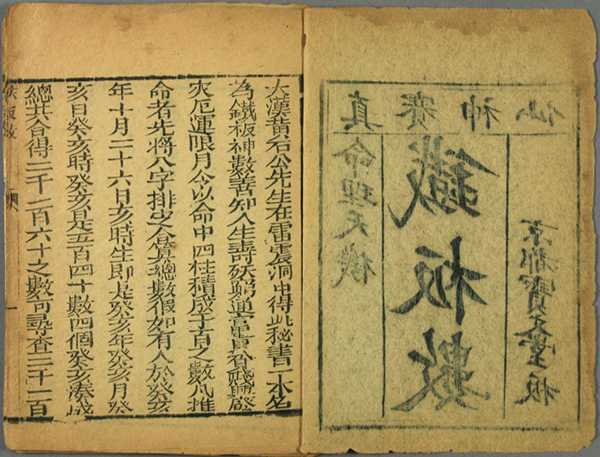 真賽神仙
命理天機
鐵板數
京都寶文堂板
大漢黃石公先生在雷震洞中得此秘書一本名
為鐵板神數善知人生壽殀窮通富貴貧賤興廢
灾厄運限月令以命中四柱積成子息之數凡推
命者先將八字排出合算總數假如有人於癸亥
年十月二十六日亥時生即是癸亥年癸亥月癸
亥日癸亥時癸亥是五百四十數四個癸亥湊成
總共合得二千二百六十之數可尋查二千二百
鐵板數
一